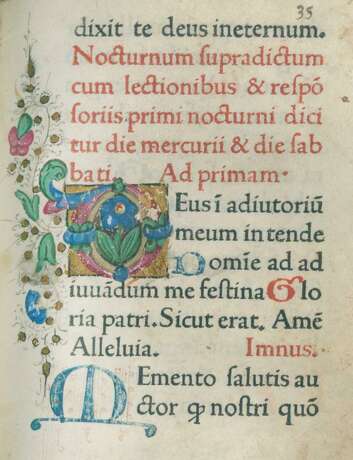 35
dixit te deus ineternum.
Nocturnum supradictum
cum lectionibus & respõ
soriis.primi nocturni dici
tur die mercurii & die sab
bati. Ad primam.
DEus ĩ adiutoriũ
meum intende
Domĩe ad ad
iuuãdum me festina Glo
ria patri. Sicut erat. Amẽ
Alleluia. Imnus.
MEmento salutis au
ctor ꝙ nostri quõ